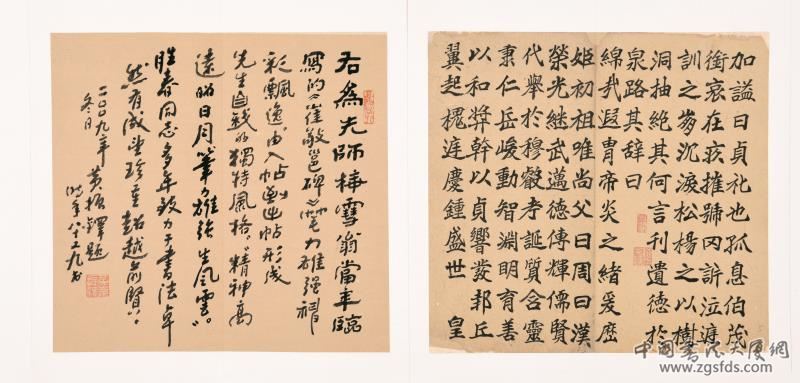 加謚曰貞礼也孤息伯茂
銜哀在疚摧號罔訴泣遵
訓之崩沉淚松楊之以樹
洞抽絶其何言刊遺德於
泉路其辞曰
綿我遐胄帝炎之緒爰歴
姫初祖唯尚父曰周曰漢
榮光継武邁德傳輝儒賢
代舉於穆叡考誕質含靈
秉仁岳峻動智淵明育善
以和奨幹以貞響發邦丘
翼起槐遅慶鍾盛世 皇
右為先師梅雪翁當年臨
寫的《崔敬邕碑》笔力雄强褶
彩飄逸由入帖到出帖形成
先生自我的獨特風格。"精神高
遠昭日月筆力雄強生風雲。"
胜春同志多年致力于書法卓
然有成望珍重超越前賢!
二〇〇九年 黄振鐸題
冬月 時年八十又九书
中國書法大厦網
www.zgsfds.com